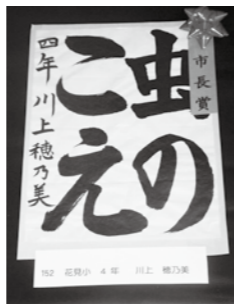 市長賞
虫の
こえ
四年 川上穂乃美
152 花見小 4年 川上 穂乃美